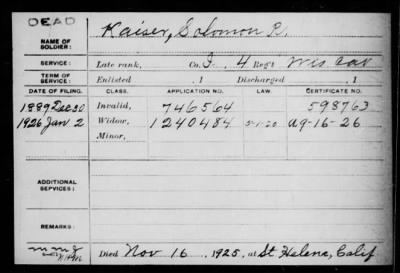 DEAD
NAME OF SOLDIER: Kaiser, Solomon R.
SERVICE: Late rank, Co. I, 4 Regt Wis Cav
TERM OF SERVICE: Enlisted , 1 Discharged , 1
DATE OF FILING. CLASS. APPLICATION NO. LAW. CERTIFICATE NO.
1889 Dec 30 Invalid, 746564 598763
1926 Jan 2 Widow, 1240484 5-1-20 A9-16-26
Minor,
ADDITIONAL SERVICES:
REMARKS:
Died Nov 16, 1925, at St Helena, Calif